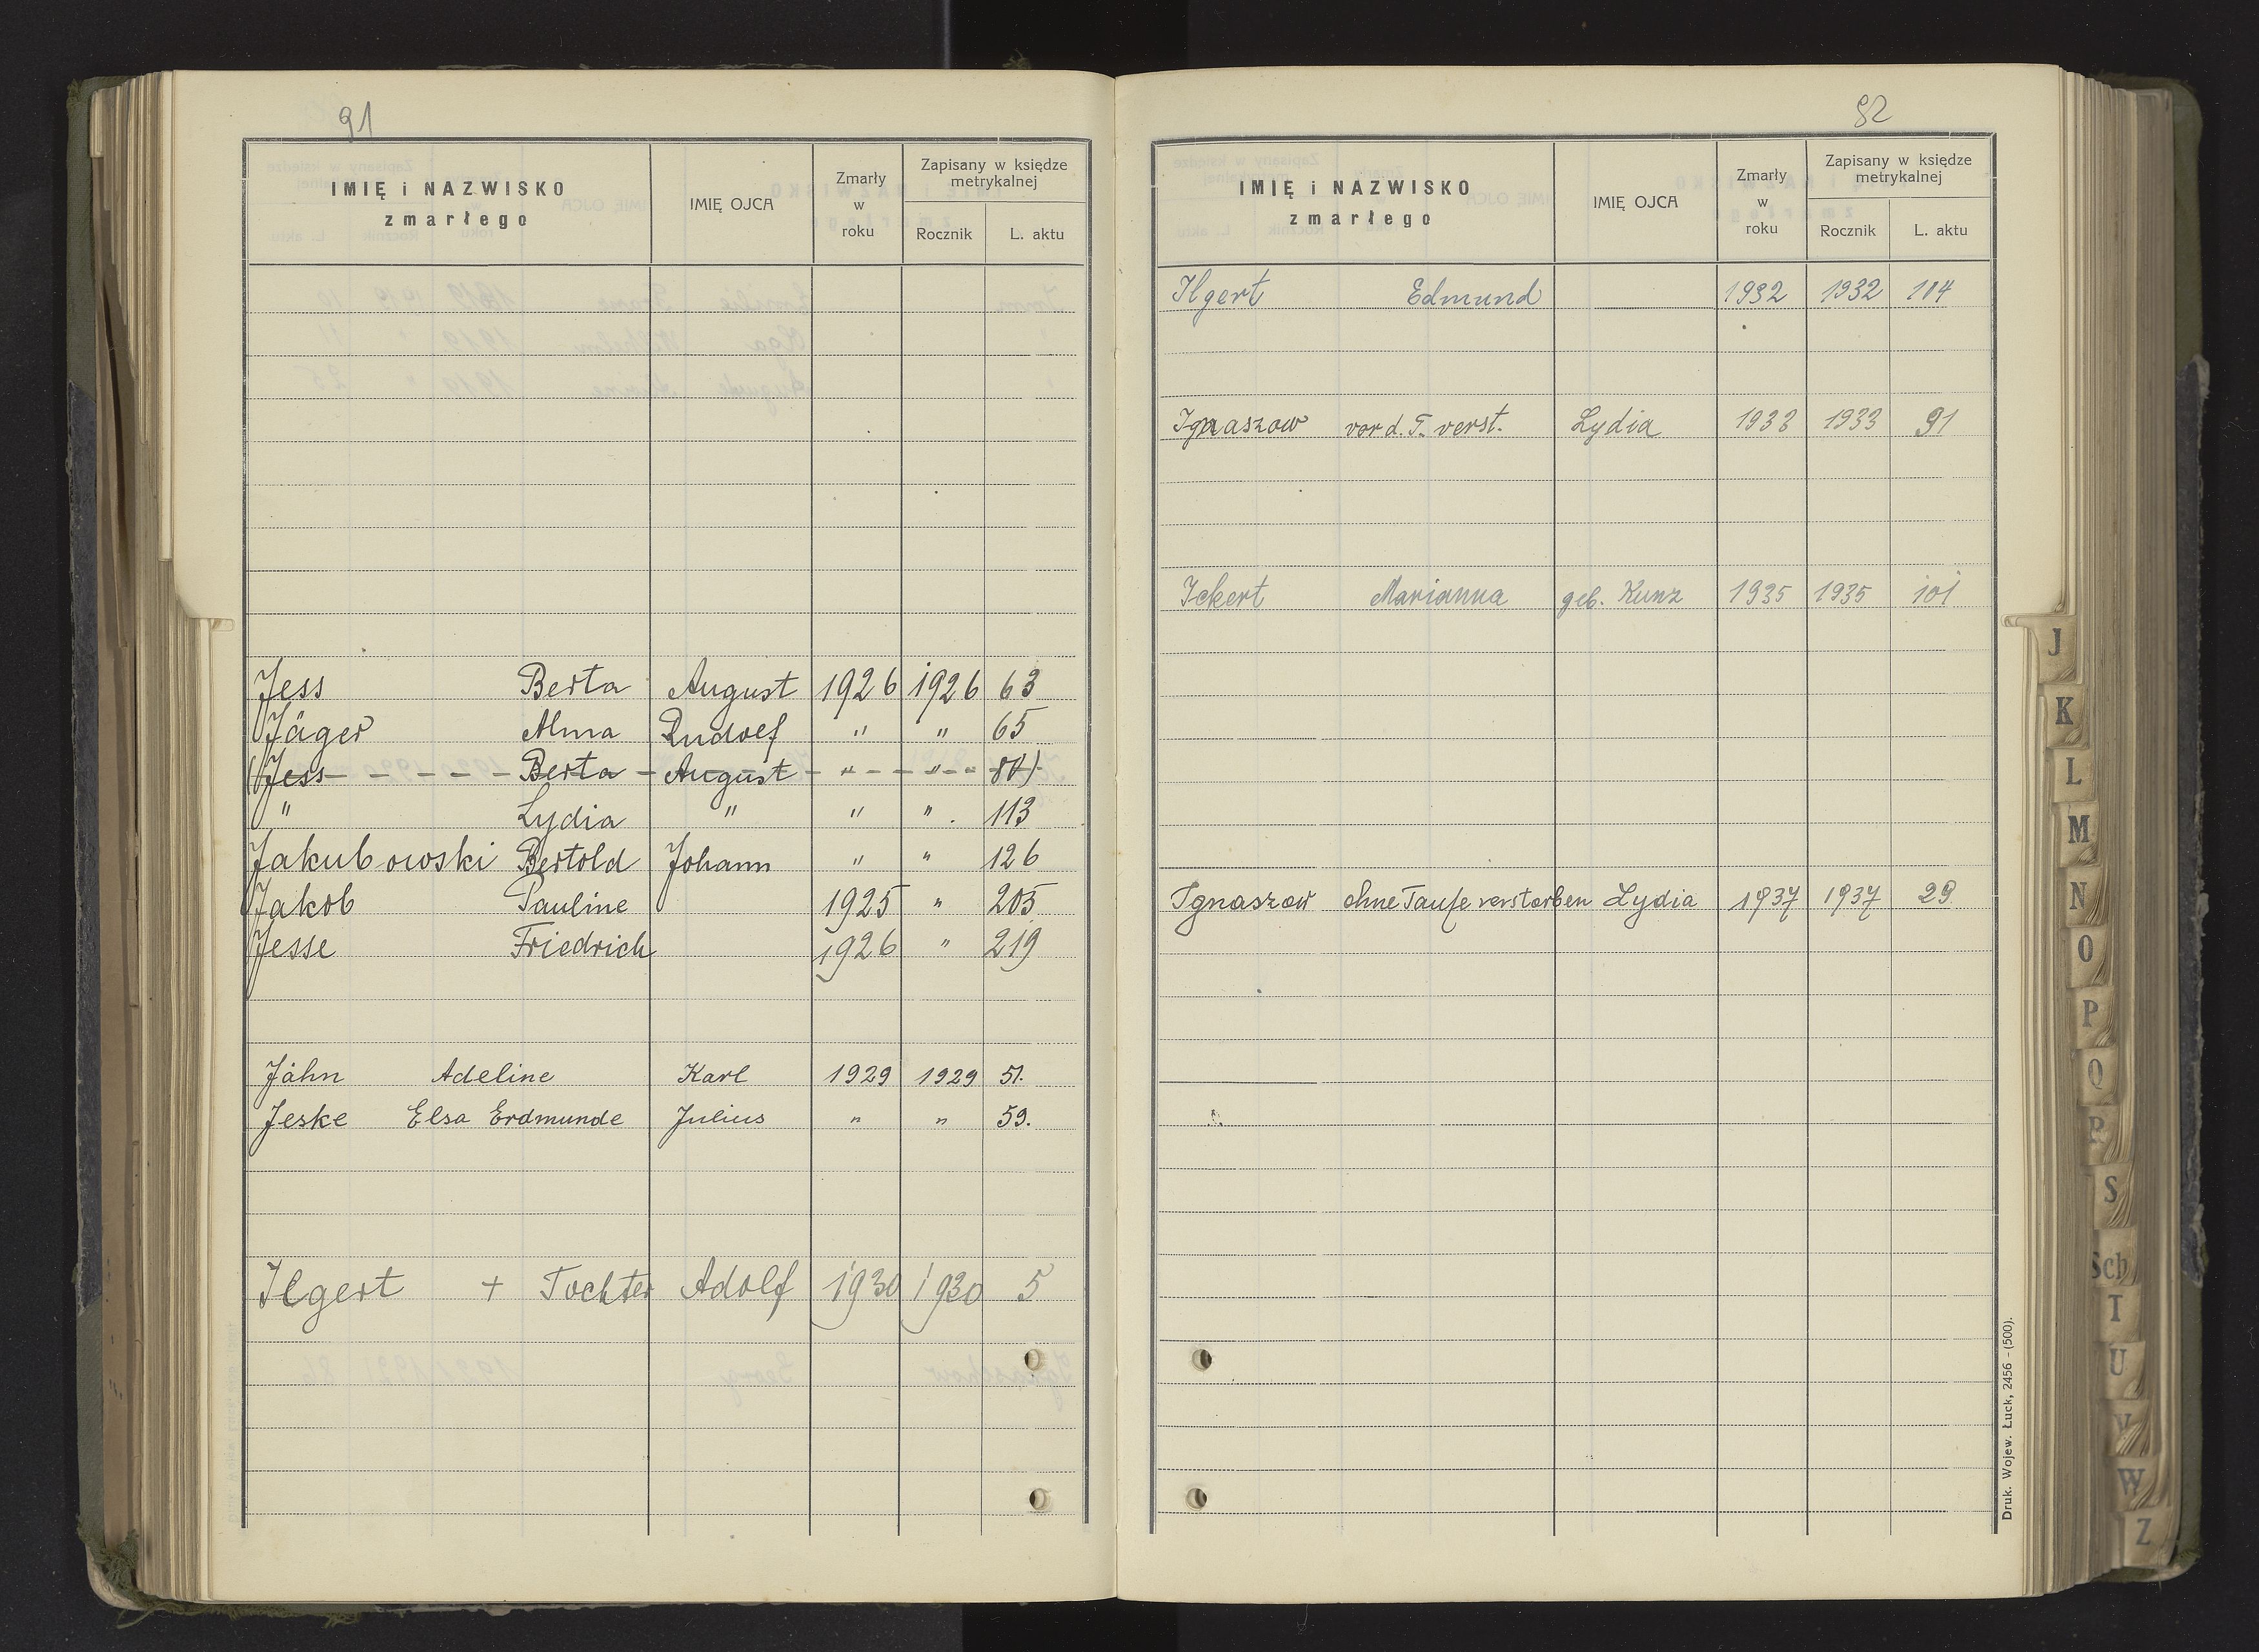 91
IMIĘ i NAZWISKO
zmarłego
IMIĘ OJCA
Zmarły
w
roku
Zapisany w księdze
metrykalnej
Rocznik L. aktu
Jess Berta August 1926 1926 63
Jäger Alma Rudolf " " 65
(Jess Berta August " " 80)
" Lydia " " " 113
Jakubowski Bertold Johann " " 126
Jakob Pauline 1925 " 205
Jesse Friedrich 1926 " 219
Jahn Adeline Karl 1929 1929 51.
Jeske Elsa Erdmunde Julius " " 59.
Ilgert + Tochter Adolf 1930 1930 5
82
IMIĘ i NAZWISKO
zmarłego
IMIĘ OJCA
Zmarły
w
roku
Zapisany w księdze
metrykalnej
Rocznik L. aktu
Ilgert Edmund 1932 1932 104
Ignaszow vor d. T. verst. Lydia 1933 1933 91
Ickert Marianna geb. Kunz 1935 1935 101
Ignaszow ohne Taufe verstorben Lydia 1937 1937 29
Druk. Wojew. Łuck, 2456 - (500).
J
K
L
M
N
O
P
Q
R
S
Sch
T
U
V
W
Z